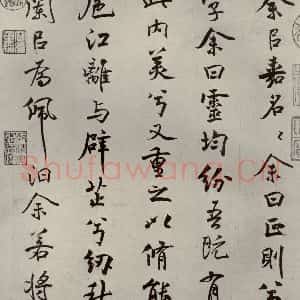 余以嘉名〻余曰正则兮
字余曰靈均纷吾既有
此内美兮又重之以脩能
扈江離与辟芷兮紉秋
蘭以为佩汩余若将
Shufawang.cn